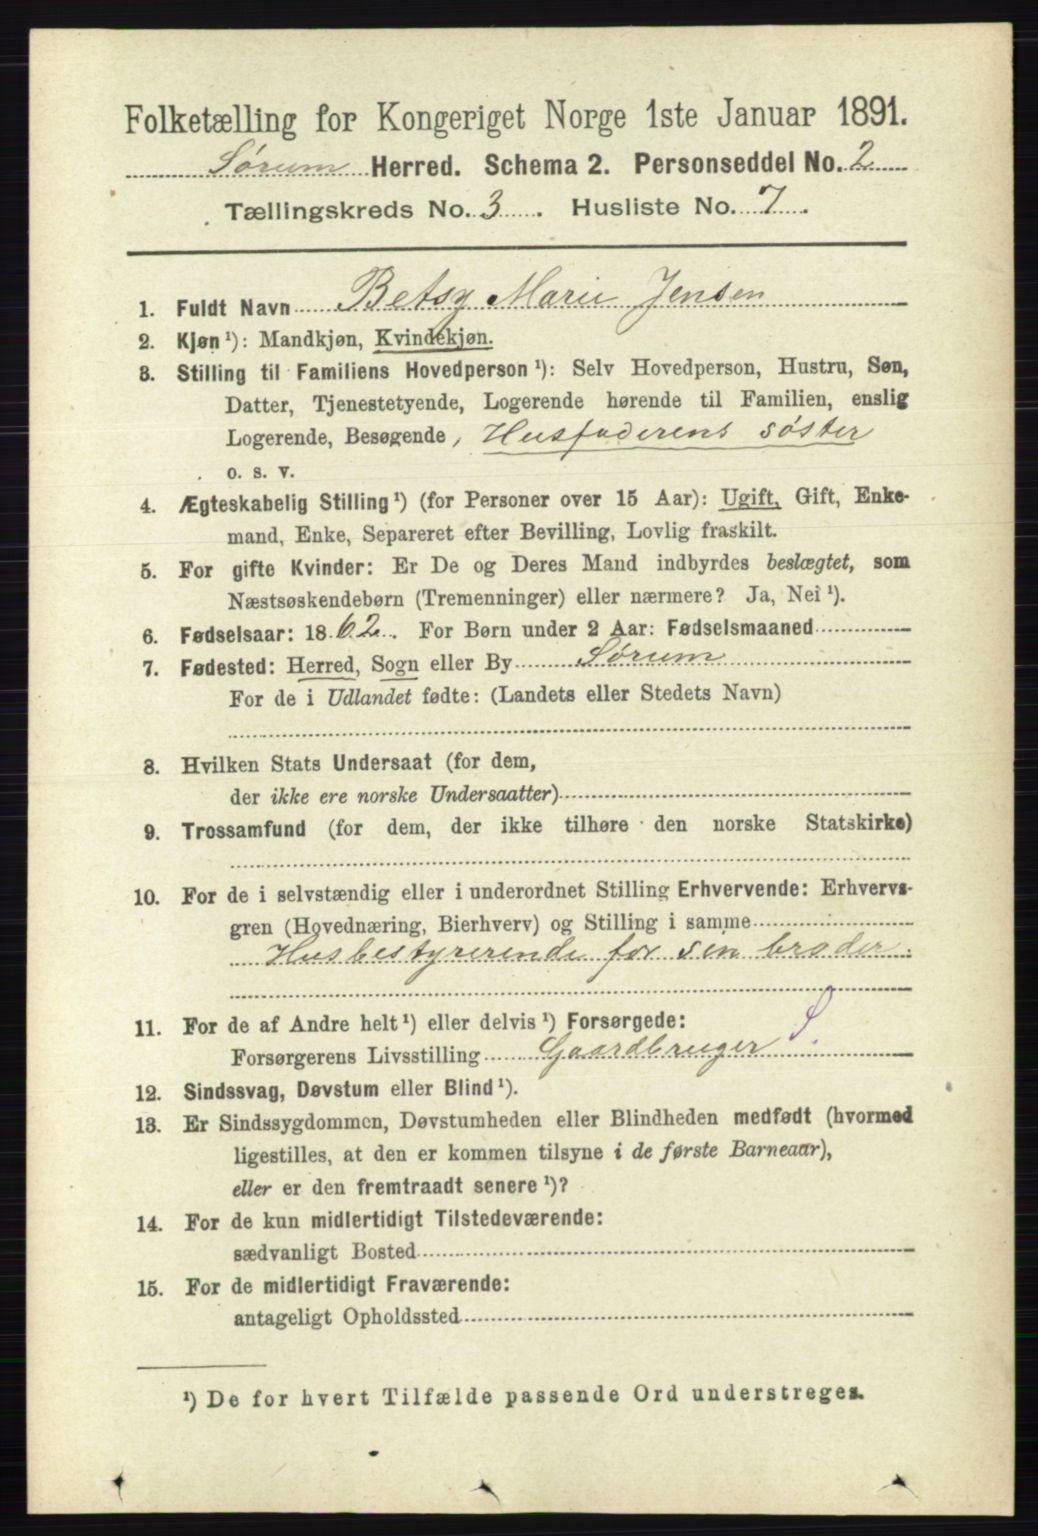 Folketælling for Kongeriget Norge 1ste Januar 1891.
Sørum Herred. Schema 2. Personseddel No. 2
Tællingskreds No. 3. Husliste No. 7.
1. Fuldt Navn Betsy Marie Jensen
2. Kjøn ¹): Mandkjøn, Kvindekjøn.
3. Stilling til Familiens Hovedperson ¹): Selv Hovedperson, Hustru, Søn,
Datter, Tjenestetyende, Logerende hørende til Familien, enslig
Logerende, Besøgende, Husfaderens søster
o. s. v.
4. Ægteskabelig Stilling ¹) (for Personer over 15 Aar): Ugift, Gift, Enke-
mand, Enke, Separeret efter Bevilling, Lovlig fraskilt.
5. For gifte Kvinder: Er De og Deres Mand indbyrdes beslægtet, som
Næstsøskendebørn (Tremenninger) eller nærmere? Ja, Nei ¹).
6. Fødselsaar: 1862. For Børn under 2 Aar: Fødselsmaaned
7. Fødested: Herred, Sogn eller By Sørum
For de i Udlandet fødte: (Landets eller Stedets Navn)
8. Hvilken Stats Undersaat (for dem,
der ikke ere norske Undersaatter)
9. Trossamfund (for dem, der ikke tilhøre den norske Statskirke)
10. For de i selvstændig eller i underordnet Stilling Erhvervende: Erhvervs-
gren (Hovednæring, Bierhverv) og Stilling i samme
Husbestyrerende for sin broder.
11. For de af Andre helt ¹) eller delvis ¹) Forsørgede:
Forsørgerens Livsstilling Gaardbruger S.
12. Sindssvag, Døvstum eller Blind ¹).
13. Er Sindssygdommen, Døvstumheden eller Blindheden medfødt (hvormed
ligestilles, at den er kommen tilsyne i de første Barneaar),
eller er den fremtraadt senere ¹)?
14. For de kun midlertidigt Tilstedeværende:
sædvanligt Bosted
15. For de midlertidigt Fraværende:
antageligt Opholdssted
¹) De for hvert Tilfælde passende Ord understreges.